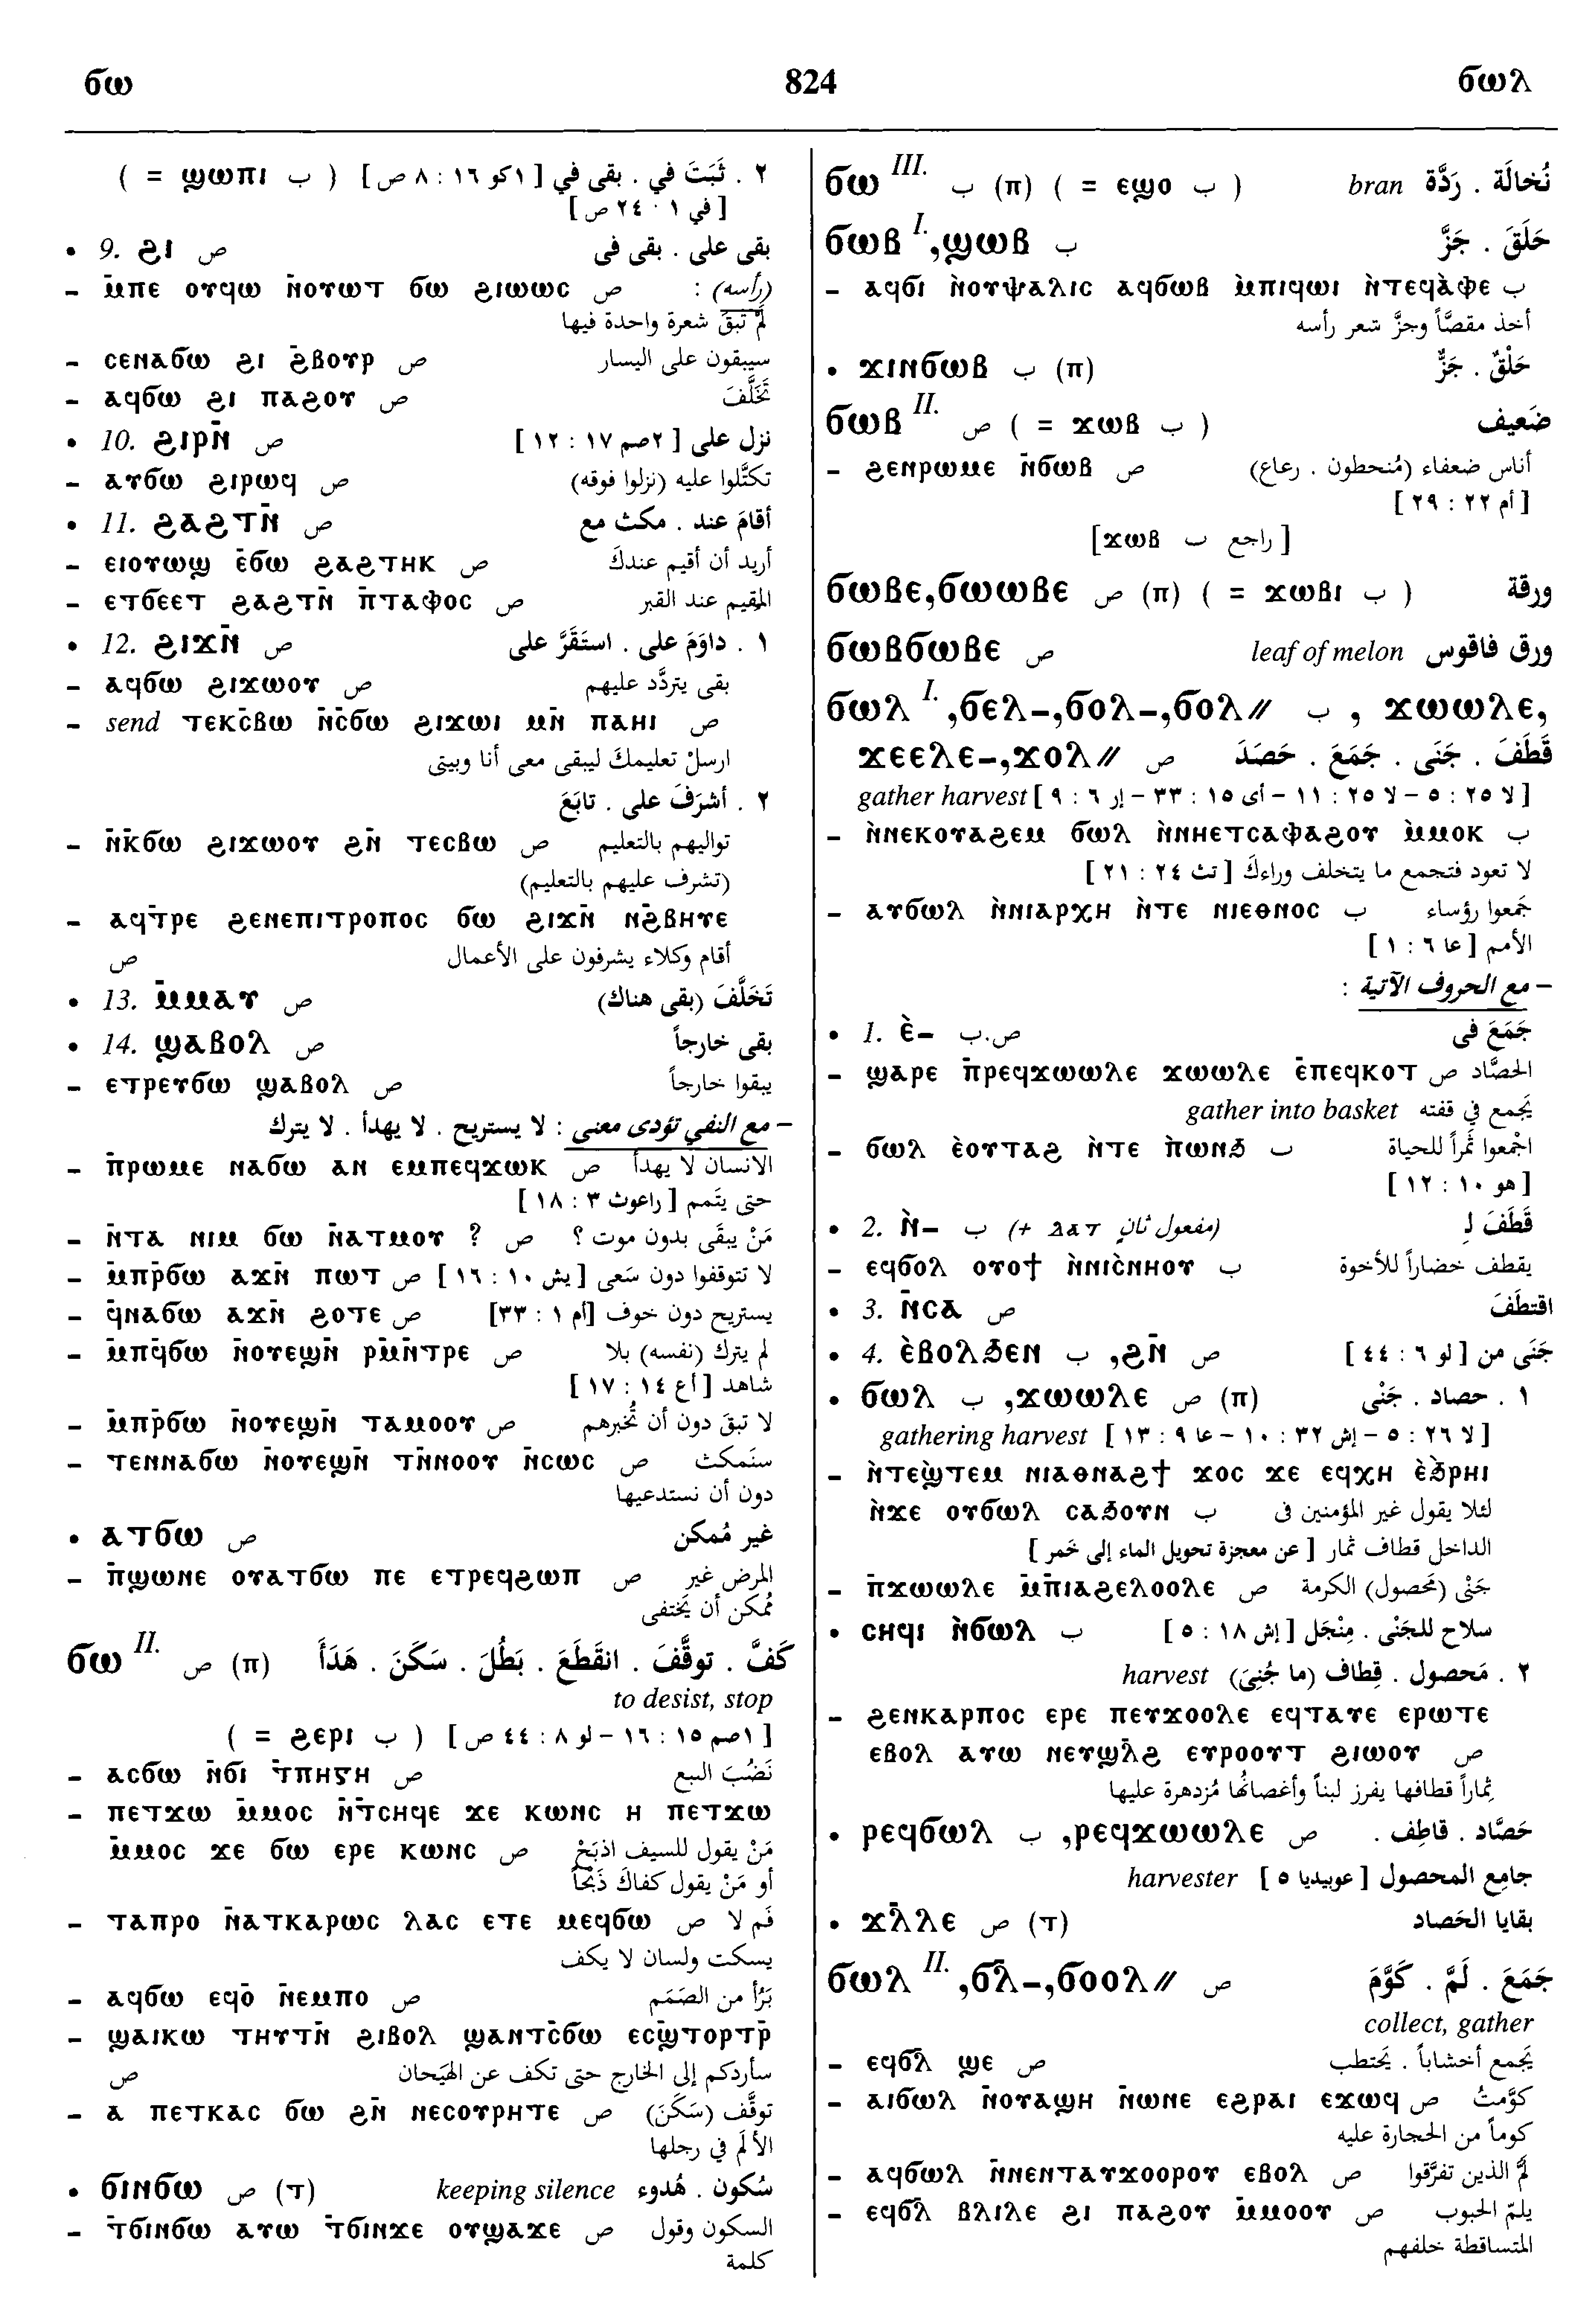 ϭⲱ 824 ϭⲱⲗ
٢ . ثَبَتَ في . بقى في [ ١كو ١٦ : ٨ ص ] ( ب ϣⲱⲡⲓ = )
[ في ١ : ٢٤ ص ]
• 9. ϩⲓ ص بقى على . بقى فى
– ⲙ̄ⲡⲉ ⲟⲩϥⲱ ⲛ̄ⲟⲩⲱⲧ ϭⲱ ϩⲓⲱⲱⲥ ص (رأسه) :
لَمْ تبقَ شعرة واحدة فيها
– ⲥⲉⲛⲁϭⲱ ϩⲓ ϩ̄ⲃⲟⲩⲣ ص سيبقون على اليسار
– ⲁϥϭⲱ ϩⲓ ⲡⲁϩⲟⲩ ص تَخَلَّفَ
• 10. ϩⲓⲣⲛ̄ ص نزل على [ ٢صم ١٧ : ١٢ ]
– ⲁⲩϭⲱ ϩⲓⲣⲱϥ ص تكتَّلوا عليه (نزلوا فوقه)
• 11. ϩⲁϩⲧⲛ̄ ص أقامَ عند . مكث مع
– ⲉⲓⲟⲩⲱϣ ⲉ̀ϭⲱ ϩⲁϩⲧⲏⲕ ص أريد أن أقيم عندكَ
– ⲉⲧϭⲉⲉⲧ ϩⲁϩⲧⲛ̄ ⲡ̄ⲧⲁⲫⲟⲥ ص المقيم عند القبر
• 12. ϩⲓϫⲛ̄ ص ١ . داوَمَ على . استَقَرَّ على
– ⲁϥϭⲱ ϩⲓϫⲱⲟⲩ ص بقى يتردَّد عليهم
– send ⲧⲉⲕⲥ̄ⲃⲱ ⲛ̄ⲥ̄ϭⲱ ϩⲓϫⲱⲓ ⲙⲛ̄ ⲡⲁⲏⲓ ص
ارسلْ تعليمكَ ليبقى معى أنا وبيتى
٢ . أشرَفَ على . تابَعَ
– ⲛ̄ⲕ̄ϭⲱ ϩⲓϫⲱⲟⲩ ϩⲛ̄ ⲧⲉⲥⲃⲱ ص تواليهم بالتعليم
(تشرف عليهم بالتعليم)
– ⲁϥⲧ̄ⲣⲉ ϩⲉⲛⲉⲡⲓⲧⲣⲟⲡⲟⲥ ϭⲱ ϩⲓϫⲛ̄ ⲛϩ̄ⲃⲏⲩⲉ
ص أقام وكلاء يشرفون على الأعمال
• 13. ⲙ̄ⲙⲁⲩ ص تَخَلَّفَ (بقى هناك)
• 14. ϣⲁⲃⲟⲗ ص بقى خارجاً
– ⲉⲧⲣⲉⲩϭⲱ ϣⲁⲃⲟⲗ ص يبقوا خارجاً
– مع النفي تؤدى معنى : لا يستريح . لا يهدأ . لا يترك
– ⲡ̄ⲣⲱⲙⲉ ⲛⲁϭⲱ ⲁⲛ ⲉⲙⲡⲉϥϫⲱⲕ ص الانسان لا يهدأ
حتى يتَمم [ راعوث ٣ : ١٨ ]
– ⲛ̄ⲧⲁ ⲛⲓⲙ ϭⲱ ⲛ̄ⲁⲧⲙⲟⲩ ? ص مَنْ يبقَى بدون موت ؟
– ⲙ̄ⲡⲣ̄ϭⲱ ⲁϫⲛ̄ ⲡⲱⲧ ص لا تتوقفوا دون سَعى [ يش ١٠ : ١٦ ]
– ϥ̄ⲛⲁϭⲱ ⲁϫⲛ̄ ϩⲟⲧⲉ ص يستريح دون خوف [أم ١ : ٣٣]
– ⲙ̄ⲡϥ̄ϭⲱ ⲛ̄ⲟⲩⲉϣⲛ̄ ⲣⲙ̄ⲛ̄ⲧⲣⲉ ص لم يترك (نفسه) بلا
شاهد [ أع ١٤ : ١٧ ]
– ⲙ̄ⲡⲣ̄ϭⲱ ⲛ̄ⲟⲩⲉϣⲛ̄ ⲧⲁⲙⲟⲟⲩ ص لا تبقَ دون أن تُخبرهم
– ⲧⲉⲛⲛⲁϭⲱ ⲛ̄ⲟⲩⲉϣⲛ̄ ⲧⲛ̄ⲛⲟⲟⲩ ⲛ̄ⲥⲱⲥ ص سنَمكث
دون أن نستدعيها
• ⲁⲧϭⲱ ص غير مُمكن
– ⲡ̄ϣⲱⲛⲉ ⲟⲩⲁⲧϭⲱ ⲡⲉ ⲉⲧⲣⲉϥϩⲱⲡ ص المرض غير
مُمكن أن يَختفى
ϭⲱ II. ص (ⲡ) كَفَّ . توقَّفَ . انقَطَعَ . بَطُلَ . سَكَنَ . هَدَأَ
to desist, stop
[ ١صم ١٥ : ١٦ – لو ٨ : ٤٤ ص ] ( ب ϩⲉⲣⲓ = )
– ⲁⲥϭⲱ ⲛ̄ϭⲓ ⲧ̄ⲡⲏⲅⲏ ص نَضُبَ النبع
– ⲡⲉⲧϫⲱ ⲙ̄ⲙⲟⲥ ⲛ̄ⲧⲥⲏϥⲉ ϫⲉ ⲕⲱⲛⲥ ⲏ ⲡⲉⲧϫⲱ
ⲙ̄ⲙⲟⲥ ϫⲉ ϭⲱ ⲉⲣⲉ ⲕⲱⲛⲥ ص مَنْ يقول للسيف اذبَحْ
أو مَنْ يقول كفاكَ ذَبْحاً
– ⲧⲁⲡⲣⲟ ⲛ̄ⲁⲧⲕⲁⲣⲱⲥ ⲗⲁⲥ ⲉⲧⲉ ⲙⲉϥϭⲱ ص فَم لا
يسكت ولسان لا يكف
– ⲁϥϭⲱ ⲉϥⲟ̄ ⲛ̄ⲉⲙⲡⲟ ص بَرَأَ من الصَمَم
– ϣⲁⲓⲕⲱ ⲧⲏⲩⲧⲛ̄ ϩⲓⲃⲟⲗ ϣⲁⲛⲧⲥ̄ϭⲱ ⲉⲥϣ̄ⲧⲟⲣⲧⲣ̄
ص سأردكم إلى الخارج حتى تكف عن الهَيَجان
– ⲁ ⲡⲉⲧⲕⲁⲥ ϭⲱ ϩⲛ̄ ⲛⲉⲥⲟⲩⲣⲏⲧⲉ ص توقَّف (سَكَنَ)
الألَم في رجلها
• ϭⲓⲛϭⲱ ص (ⲧ) keeping silence سُكون . هُدوء
– ⲧ̄ϭⲓⲛϭⲱ ⲁⲩⲱ ⲧ̄ϭⲓⲛϫⲉ ⲟⲩϣⲁϫⲉ ص السكون وقول
كلمة
ϭⲱ III. ب (ⲡ) ( ب ⲉϣⲟ = ) bran نُخالَة . رَدَّة
ϭⲱⲃ I. ,ϣⲱⲃ ب حَلَقَ . جَزَّ
– ⲁϥϭⲓ ⲛ̀ⲟⲩⲯⲁⲗⲓⲥ ⲁϥϭⲱⲃ ⲙ̀ⲡⲓϥⲱⲓ ⲛ̀ⲧⲉϥⲁ̀ⲫⲉ ب
أخذ مقصَّاً وجزَّ شعر رأسه
• ϫⲓⲛϭⲱⲃ ب (ⲡ) حَلْقٌ . جَزٌّ
ϭⲱⲃ II. ص ( ب ϫⲱⲃ = ) ضَعيف
– ϩⲉⲛⲣⲱⲙⲉ ⲛ̄ϭⲱⲃ ص أناس ضعفاء (مُنحطون . رعاع)
[ أم ٢٢ : ٢٩ ]
[ راجع ب ϫⲱⲃ]
ϭⲱⲃⲉ,ϭⲱⲱⲃⲉ ص (ⲡ) ( ب ϫⲱⲃⲓ = ) ورقة
ϭⲱⲃϭⲱⲃⲉ ص leaf of melon ورق فاقوس
ϭⲱⲗ I. ,ϭⲉⲗ–,ϭⲟⲗ–,ϭⲟⲗ// ب , ϫⲱⲱⲗⲉ,
ϫⲉⲉⲗⲉ–,ϫⲟⲗ// ص قَطَفَ . جَنَى . جَمَعَ . حَصَدَ
gather harvest [ لا ٢٥ : ٥ – لا ٢٥ : ١١ – أى ١٥ : ٣٣ – إر ٦ : ٩ ]
– ⲛ̀ⲛⲉⲕⲟⲩⲁϩⲉⲙ ϭⲱⲗ ⲛ̀ⲛⲏⲉⲧⲥⲁⲫⲁϩⲟⲩ ⲙ̀ⲙⲟⲕ ب
لا تعود فتجمع ما يتخلف وراءكَ [ تث ٢٤ : ٢١ ]
– ⲁⲩϭⲱⲗ ⲛ̀ⲛⲓⲁⲣⲭⲏ ⲛ̀ⲧⲉ ⲛⲓⲉⲑⲛⲟⲥ ب جَمعوا رؤساء
الأمم [ عا ٦ : ١ ]
– مع الحروف الآتية :
• 1. ⲉ̀– ص.ب جَمَعَ فى
– ϣⲁⲣⲉ ⲡ̄ⲣⲉϥϫⲱⲱⲗⲉ ϫⲱⲱⲗⲉ ⲉ̄ⲡⲉϥⲕⲟⲧ ص الحَصَّاد
gather into basket يَجمع في قفته
– ϭⲱⲗ ⲉ̀ⲟⲩⲧⲁϩ ⲛ̀ⲧⲉ ⲡ̀ⲱⲛϧ ب اجْمعوا ثَمراً للحياة
[ هو ١٠ : ١٢ ]
• 2. ⲛ̀– ب (+ ⲇⲁⲧ مفعول ثانٍ) قَطَفَ لِـ
– ⲉϥϭⲟⲗ ⲟⲩⲟϯ ⲛ̀ⲛⲓⲥ̀ⲛⲏⲟⲩ ب يقطف خضاراً للأخوة
• 3. ⲛ̄ⲥⲁ ص اقتطَفَ
• 4. ⲉ̀ⲃⲟⲗϧⲉⲛ ب ,ϩⲛ̄ ص جَنَى من [ لو ٦ : ٤٤ ]
• ϭⲱⲗ ب ,ϫⲱⲱⲗⲉ ص (ⲡ) ١ . حصاد . جَنْى
gathering harvest [ لا ٢٦ : ٥ – إش ٣٢ : ١٠ – عا ٩ : ١٣ ]
– ⲛ̀ⲧⲉϣ̀ⲧⲉⲙ ⲛⲓⲁⲑⲛⲁϩϯ ϫⲟⲥ ϫⲉ ⲉϥⲭⲏ ⲉ̀ϧⲣⲏⲓ
ⲛ̀ϫⲉ ⲟⲩϭⲱⲗ ⲥⲁϧⲟⲩⲛ ب لئلا يقول غير المؤمنين فى
الداخل قطاف ثمار [ عن معجزة تحويل الماء إلى خَمر ]
– ⲡ̄ϫⲱⲱⲗⲉ ⲙ̄ⲡⲓⲁϩⲉⲗⲟⲟⲗⲉ ص جَنْى (مَحصول) الكرمة
• ⲥⲏϥⲓ ⲛ̀ϭⲱⲗ ب سلاح للجَنْى . مِنْجَل [ إش ١٨ : ٥ ]
٢ . مَحصول . قِطاف (ما جُنِىَ) harvest
– ϩⲉⲛⲕⲁⲣⲡⲟⲥ ⲉⲣⲉ ⲡⲉⲩϫⲟⲟⲗⲉ ⲉϥⲧⲁⲩⲉ ⲉⲣⲱⲧⲉ
ⲉⲃⲟⲗ ⲁⲩⲱ ⲛⲉⲩϣⲗ̄ϩ ⲉⲩⲣⲟⲟⲩⲧ ϩⲓⲱⲟⲩ ص
ثِماراً قطافها يفرز لبناً وأغصانُها مُزدهرة عليها
• ⲣⲉϥϭⲱⲗ ب ,ⲣⲉϥϫⲱⲱⲗⲉ ص حَصَّاد . قاطِف .
harvester جامِع المحصول [ عوبيديا ٥ ]
• ϫⲗ̄ⲗⲉ ص (ⲧ) بقايا الحَصاد
ϭⲱⲗ II. ,ϭⲗ̄–,ϭⲟⲟⲗ// ص جَمَعَ . لَمَّ . كَوَّمَ
collect, gather
– ⲉϥϭⲗ̄ ϣⲉ ص يَجمع أخشاباً . يَحتطب
– ⲁⲓϭⲱⲗ ⲛ̄ⲟⲩⲁϣⲏ ⲛ̄ⲱⲛⲉ ⲉϩⲣⲁⲓ ⲉϫⲱϥ ص كوَّمتُ
كوماً من الحجارة عليه
– ⲁϥϭⲱⲗ ⲛ̄ⲛⲉⲛⲧⲁⲩϫⲟⲟⲣⲟⲩ ⲉⲃⲟⲗ ص لَمَّ الذين تفرَّقوا
– ⲉϥϭⲗ̄ ⲃⲗⲓⲗⲉ ϩⲓ ⲡⲁϩⲟⲩ ⲙ̄ⲙⲟⲟⲩ ص يلمّ الحبوب
المتساقطة خلفهم